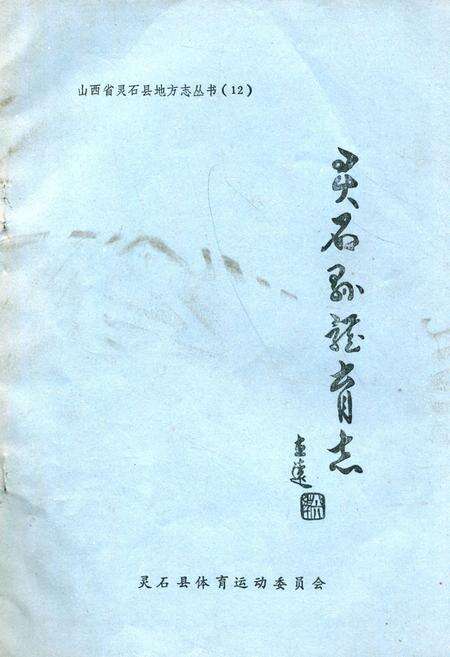 山西省灵石县地方志丛书(12)
灵石县體育志
灵石县体育运动委员会